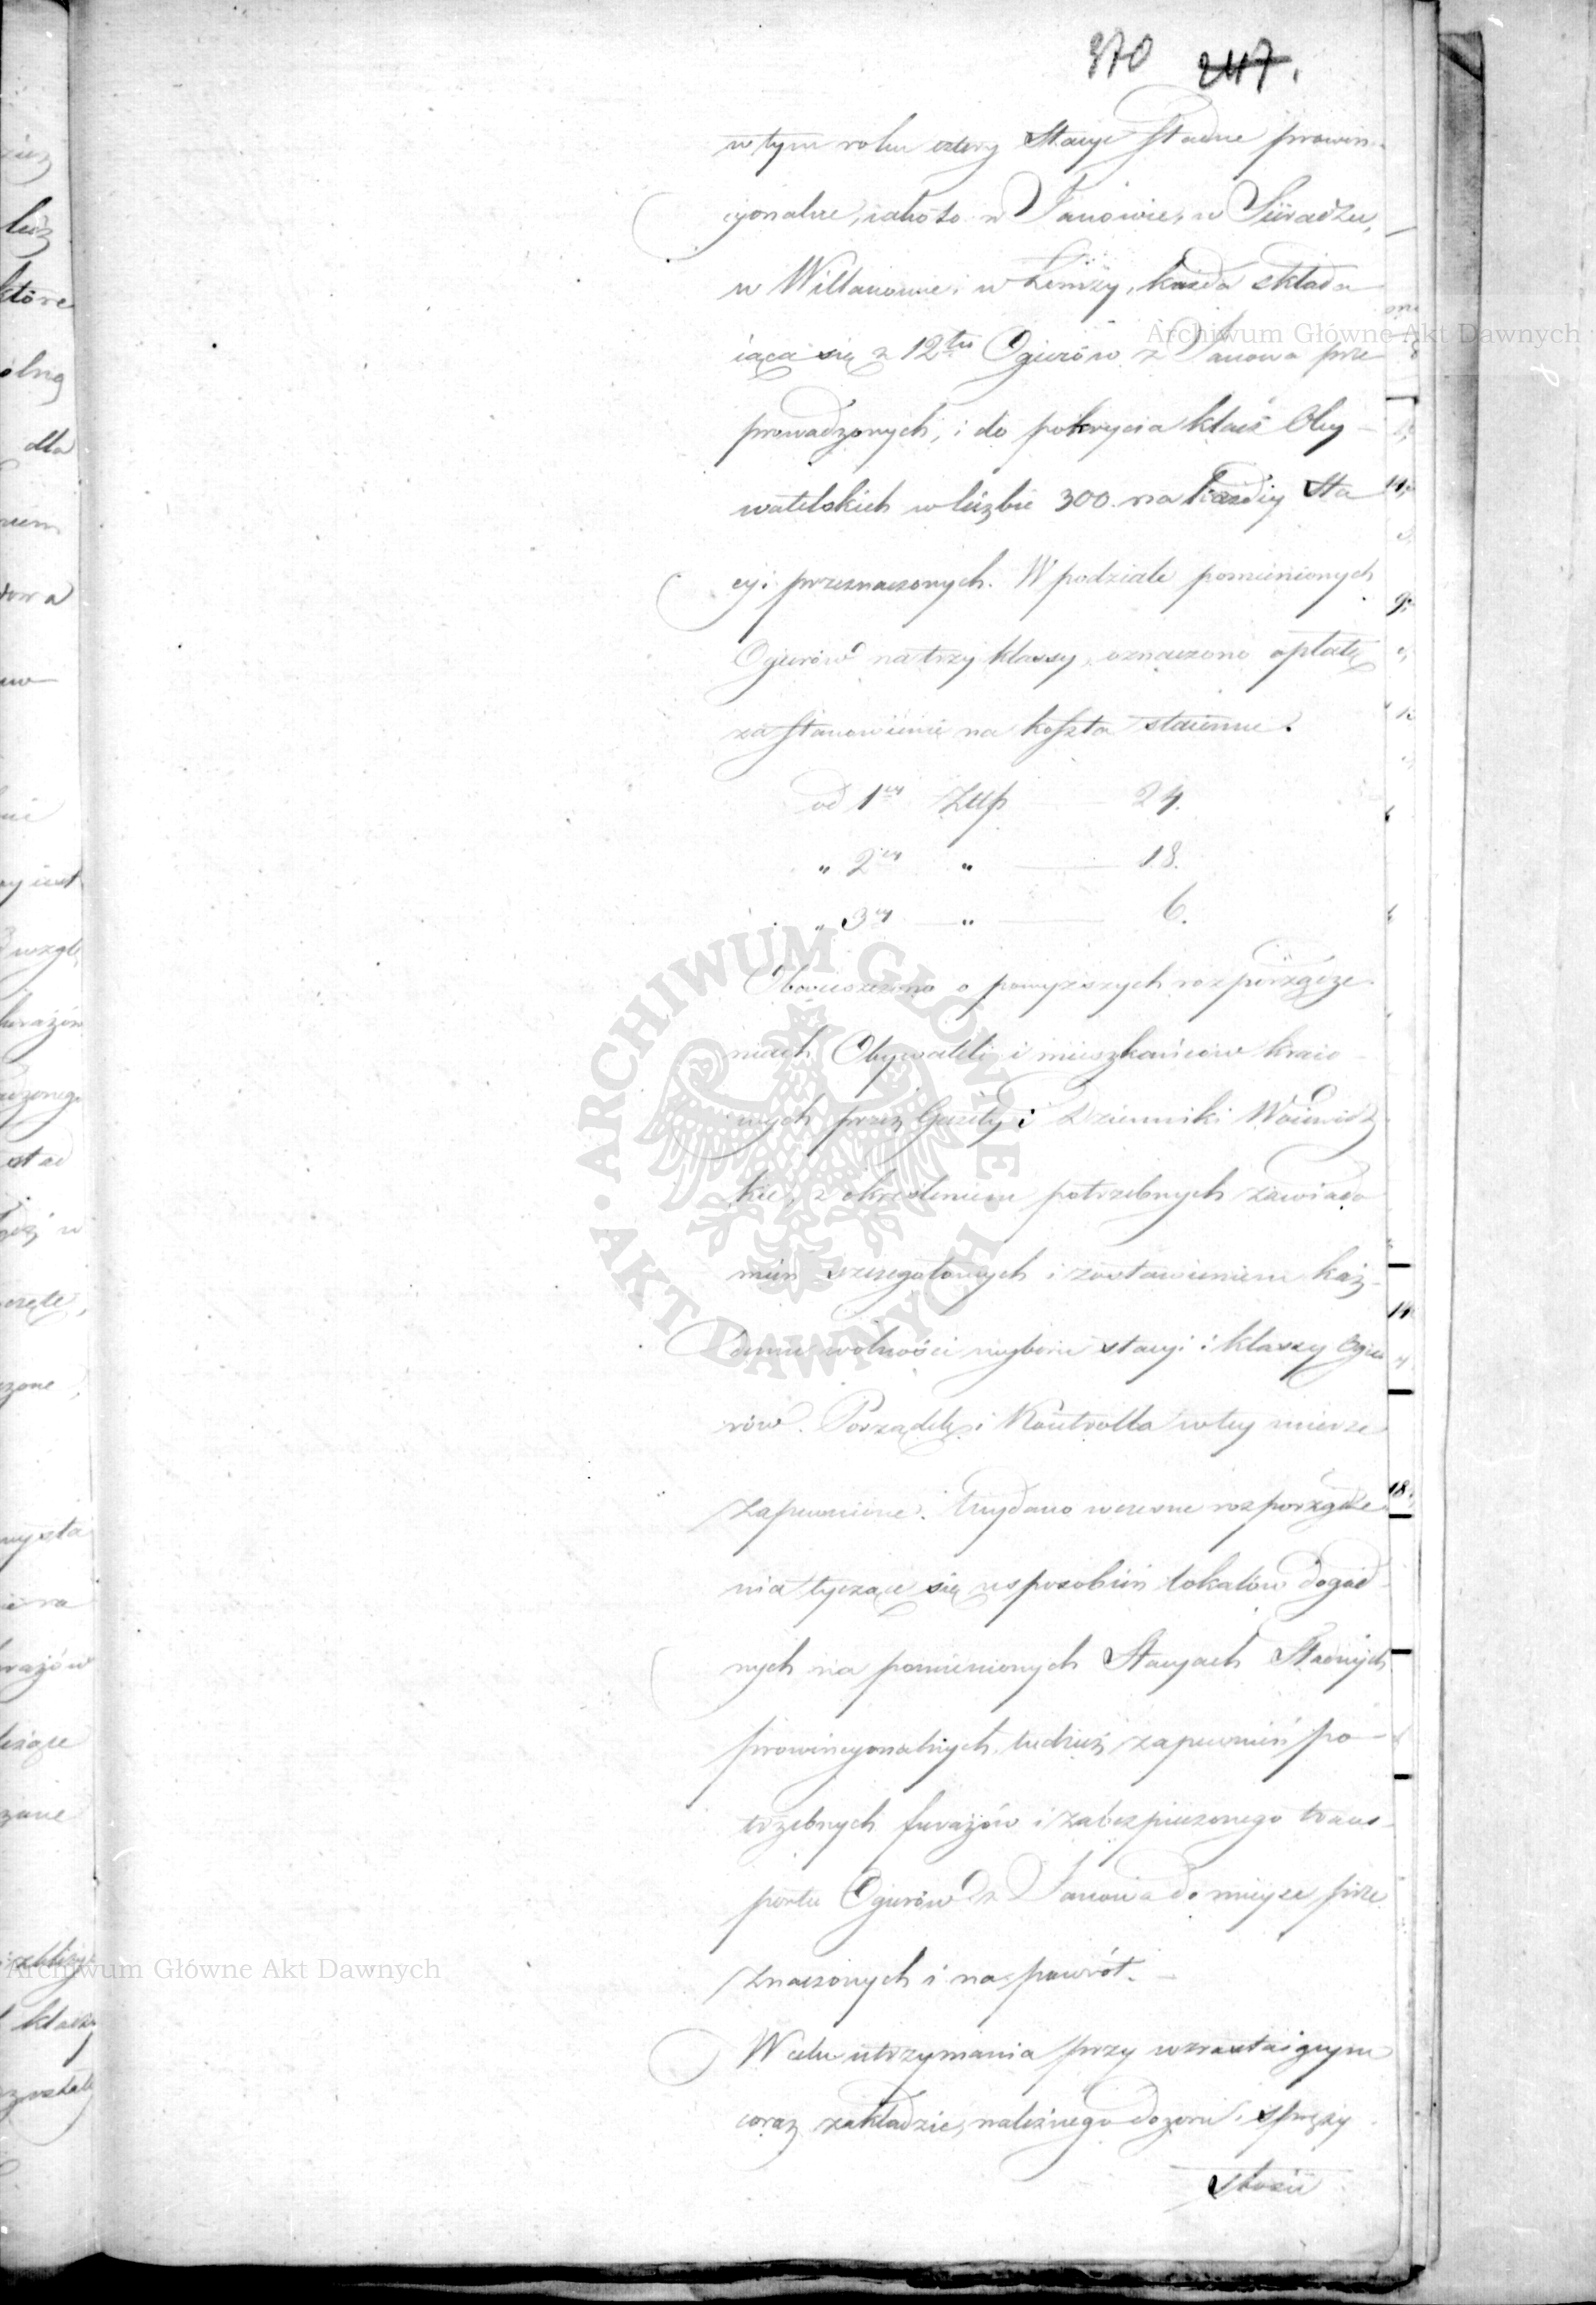 370 247.
w tym roku cztery Stacye Stadne prowin-
cyonalne, iako to w Janowie, w Sieradzu,
w Willanowie i w Łomży, każda składa
iąca się z 12tu Ogierów z Janowa prze
prowadzonych, i do pokrycia klacz Oby-
watelskich w liczbie 300. na każdéy Sta
cyi przeznaczonych. W podziale pomienionych
Ogierów na trzy klassy, oznaczono opłatę
za stanowienie na koszta staienne.
od 1éy Złłp 24.
" 2éy " 18.
" 3éy " 6.
Obwieszczono o powyższych rozporządze
niach Obywateli i mieszkańców kraio-
wych przez Gazety i Dzienniki Woiewódz
kie, z określeniem potrzebnych zawiado
mień szczegółowych i zostawieniem każ-
demu wolności wyboru stacyi i klassy Ogie
rów. Porządek i Kontrolla w téy mierze
zapewnione. Wydano wczesne rozporządze
nia tyczące się usposobień lokalów dogod-
nych na pomienionych Stacyach Stadnych
prowincyonalnych, tudzież zapewnień po-
trzebnych furażów i zabezpieczonego trans-
portu Ogierów z Janowa do mieysc prze
znaczonych i na powrót.
W celu utrzymania przy wzrastaiącym
coraz zakładzie, należnego dozoru i spręży
stości
Archiwum Główne Akt Dawnych
ARCHIWUM GŁÓWNE AKT DAWNYCH
Archiwum Główne Akt Dawnych